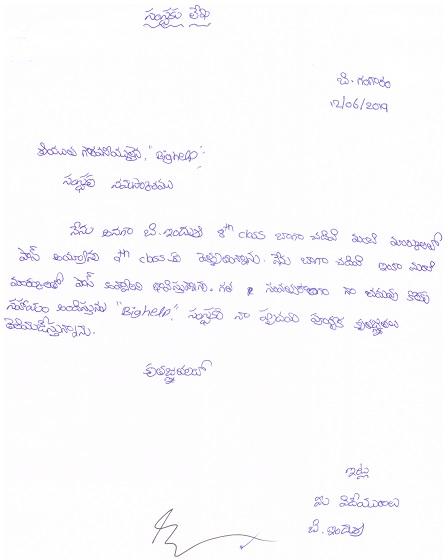 సంస్థకు లేఖ
బి. గంగారం
12/06/2019
ప్రియమైన గౌరవనీయులైన, "Bighelp"
సంస్థకు నమస్కారము
నేను అనగా బి. ఇందుశ్రీ 8th class బాగా చదివి మంచి మార్కులతో
పాస్ అయ్యాను 9th class కు వెళ్ళుతున్నాను. నేను బాగా చదివి ఇంకా మంచి
మార్కులతో పాస్ అవ్వాలని భావిస్తున్నాను. గత సంవత్సరాలుగా నా చదువు కొరకు
సహాయం అందిస్తున్న "Bighelp" సంస్థకు నా హృదయ పూర్వక కృతజ్ఞతలు
తెలియజేస్తున్నాను.
కృతజ్ఞతలతో
ఇట్లు
మీ విధేయురాలు
బి. ఇందుశ్రీ